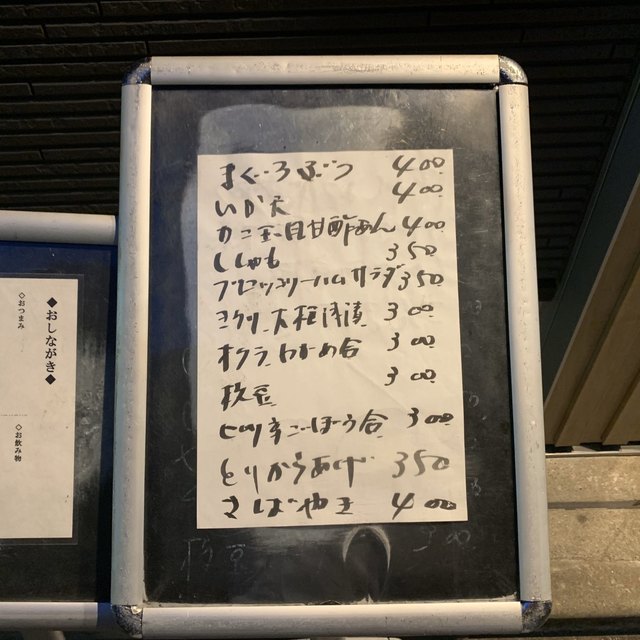 まぐろぶつ 400
いか天 400
カニ玉風甘酢あん 400
ししゃも 350
ブロッコリーハムサラダ 350
キウリ、大根浅漬 300
オクラ、わかめ合 300
枝豆 300
ピリ辛ごぼう合 300
とりからあげ 350
さばやき 400
枝豆 300
◆おしながき◆
◇おつまみ
◇お飲み物